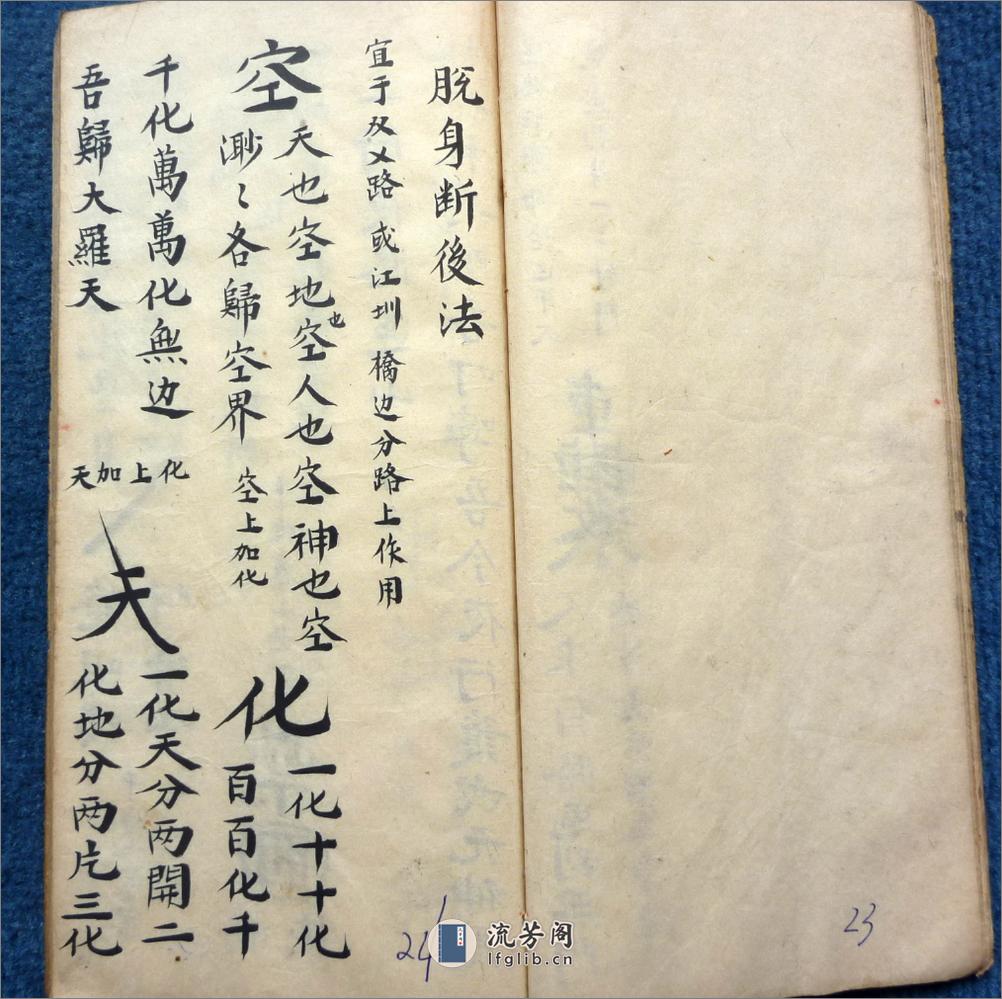 脱身断後法
宜于双乂路或江圳橋边分路上作用
空
天也空地也空人也空神也空
渺〻各歸空界
空上加化
化
一化十十化
百百化千
千化萬萬化無边
吾歸大羅天
化上加天
天
一化天分两開二
化地分两片三化
24
23
流芳阁
lfglib.cn